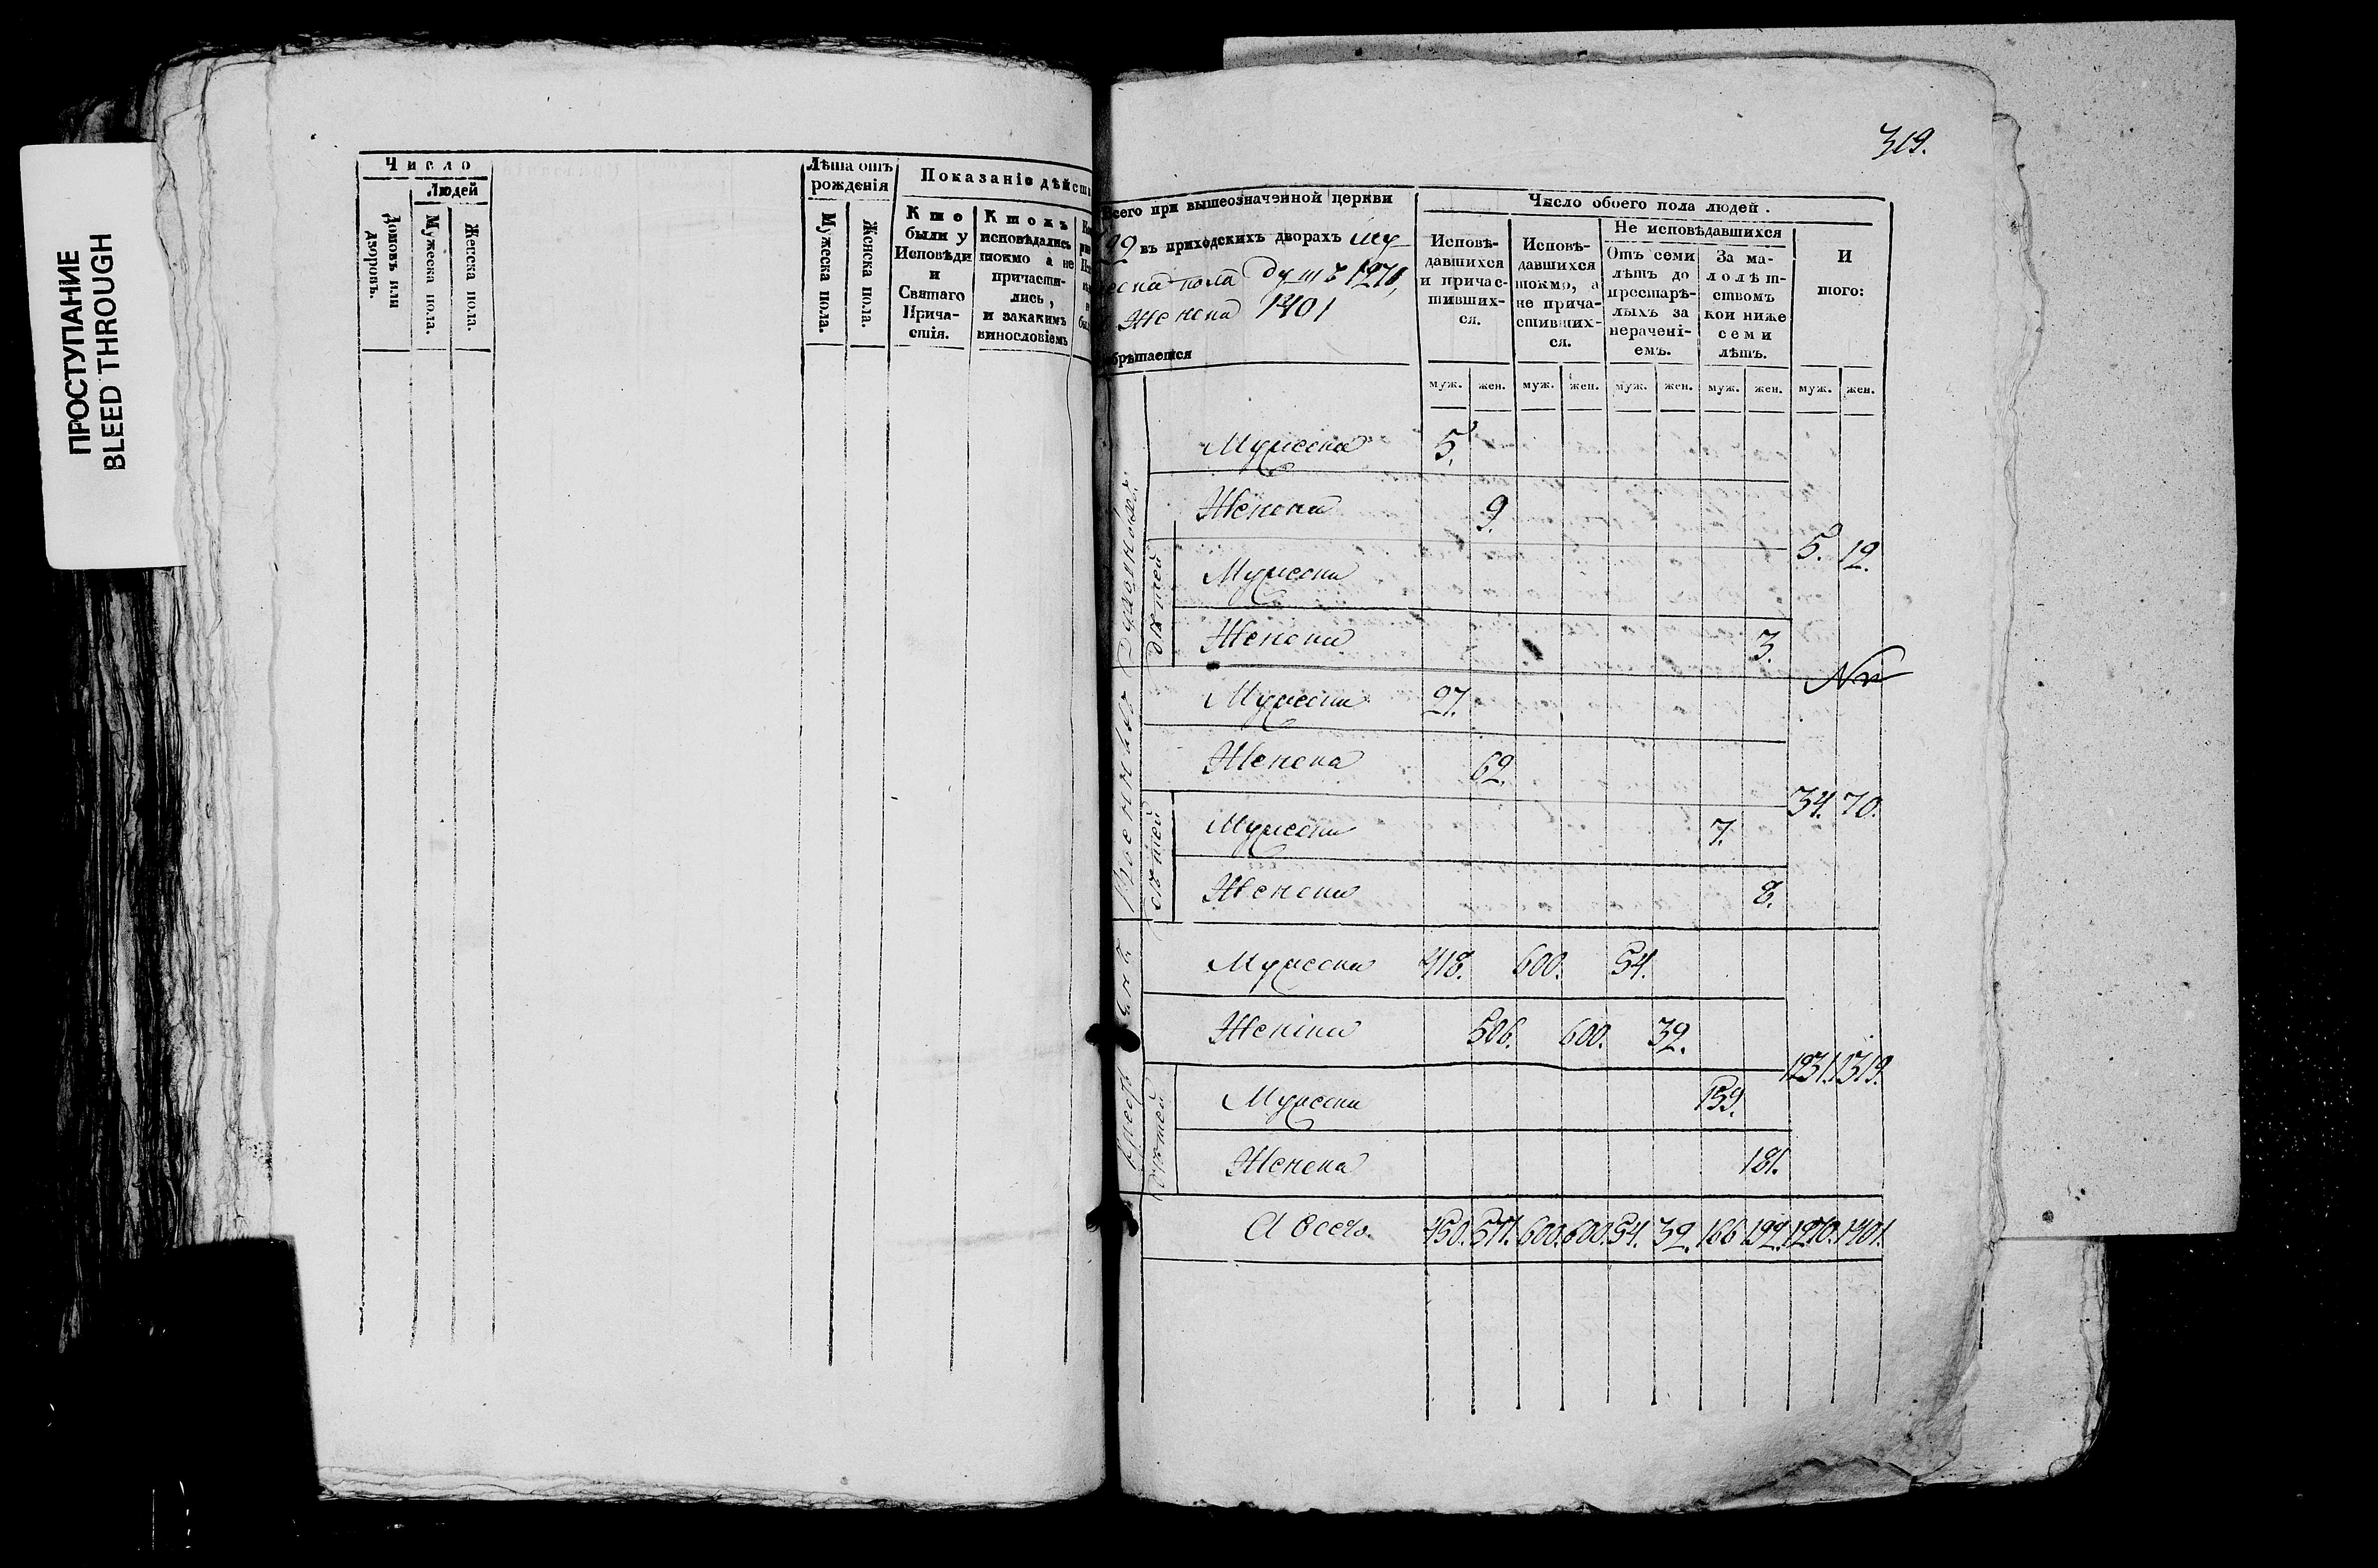 ПРОСТУПАНИЕ
BLEED THROUGH
Число
Людей
Домовъ или
дворовъ.
Мужеска пола.
Женска пола.
Лѣта отъ
рожденія
Мужеска пола.
Женска пола.
Показаніе дѣйст
Кто
были у
Исповѣди
и
Святаго
Прича-
стія.
Ктожъ
исповѣдались
токмо а не
причасти-
лись,
и закакимъ
винословіемъ
319.
Всего при вышеозначенной церкви
въ приходскихъ дворахъ му
пола душъ 1270,
Женска 1401
обрѣтается
Число обоего пола людей.
Исповѣ-
давшихся
и причас-
тивших-
ся.
Исповѣ-
давшихся
токмо, а
не прича-
стивших-
ся.
Не исповѣдавшихся
Отъ семи
лѣтъ до
престарѣ-
лыхъ за
нерачені-
емъ.
За ма-
лолѣт-
ствомъ
кои ниже
семи
лѣтъ.
И
того:
муж. жен. муж. жен. муж. жен. муж. жен. муж. жен.
Духовныхъ
Мужеска 5.
Женска 9.
5. 12.
дѣтей
Мужеска
Женска 3.
Военныхъ
Мужеска 27.
Женска 62.
34. 70.
дѣтей
Мужеска 7.
Женска 8.
Мужеска 418. 600. 54.
Женска 506. 600. 32.
1231. 1319.
дѣтей
Мужеска 159.
Женска 181.
А всего. 450. 577. 600. 600. 54. 32. 166 192. 1270. 1401.